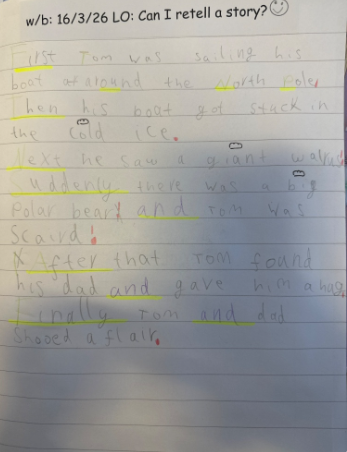 w/b: 16/3/26 LO: Can I retell a story?
First Tom was sailing his
boat at around the North Pole,
Then his boat got stuck in
the cold ice.
Next he saw a giant walrus
Suddenly there was a big
Polar bear and Tom was
Scaird!
After that Tom found
his dad and gave him a hag.
Finally Tom and dad
Shooed a flair.